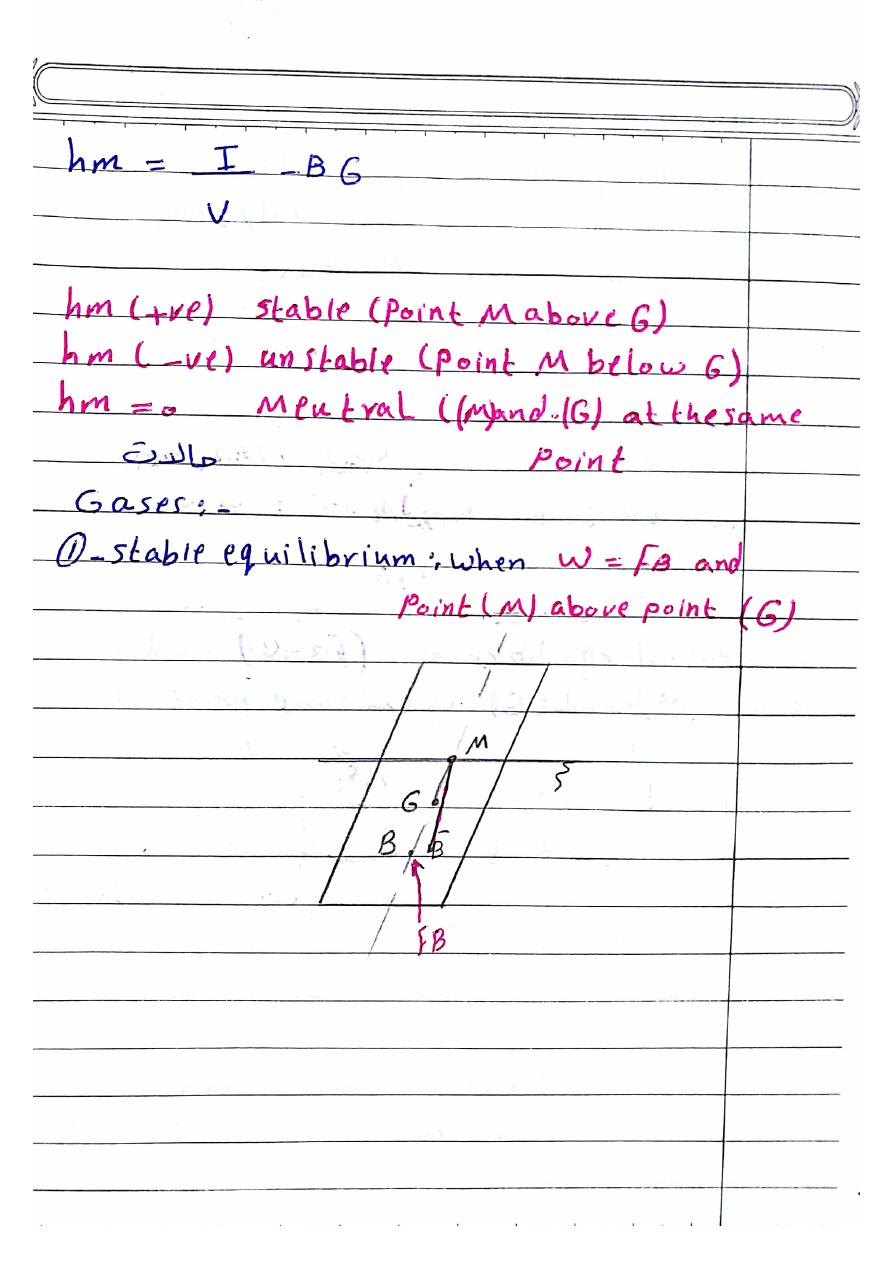 hm = I / V - B G
hm (+ve) stable (Point M above G)
hm (-ve) unstable (Point M below G)
hm = 0 Meutral ((M)and.(G) at the same
Point
حالات
Gases:-
①- stable equilibrium: when W = FB and
Point (M) above point (G)
M
G
B B
FB